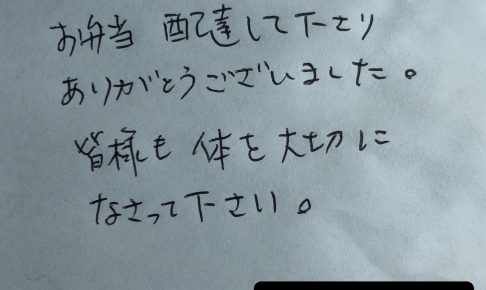 お弁当 配達して下さり
ありがとうございました。
皆様も 体を大切に
なさって下さい。